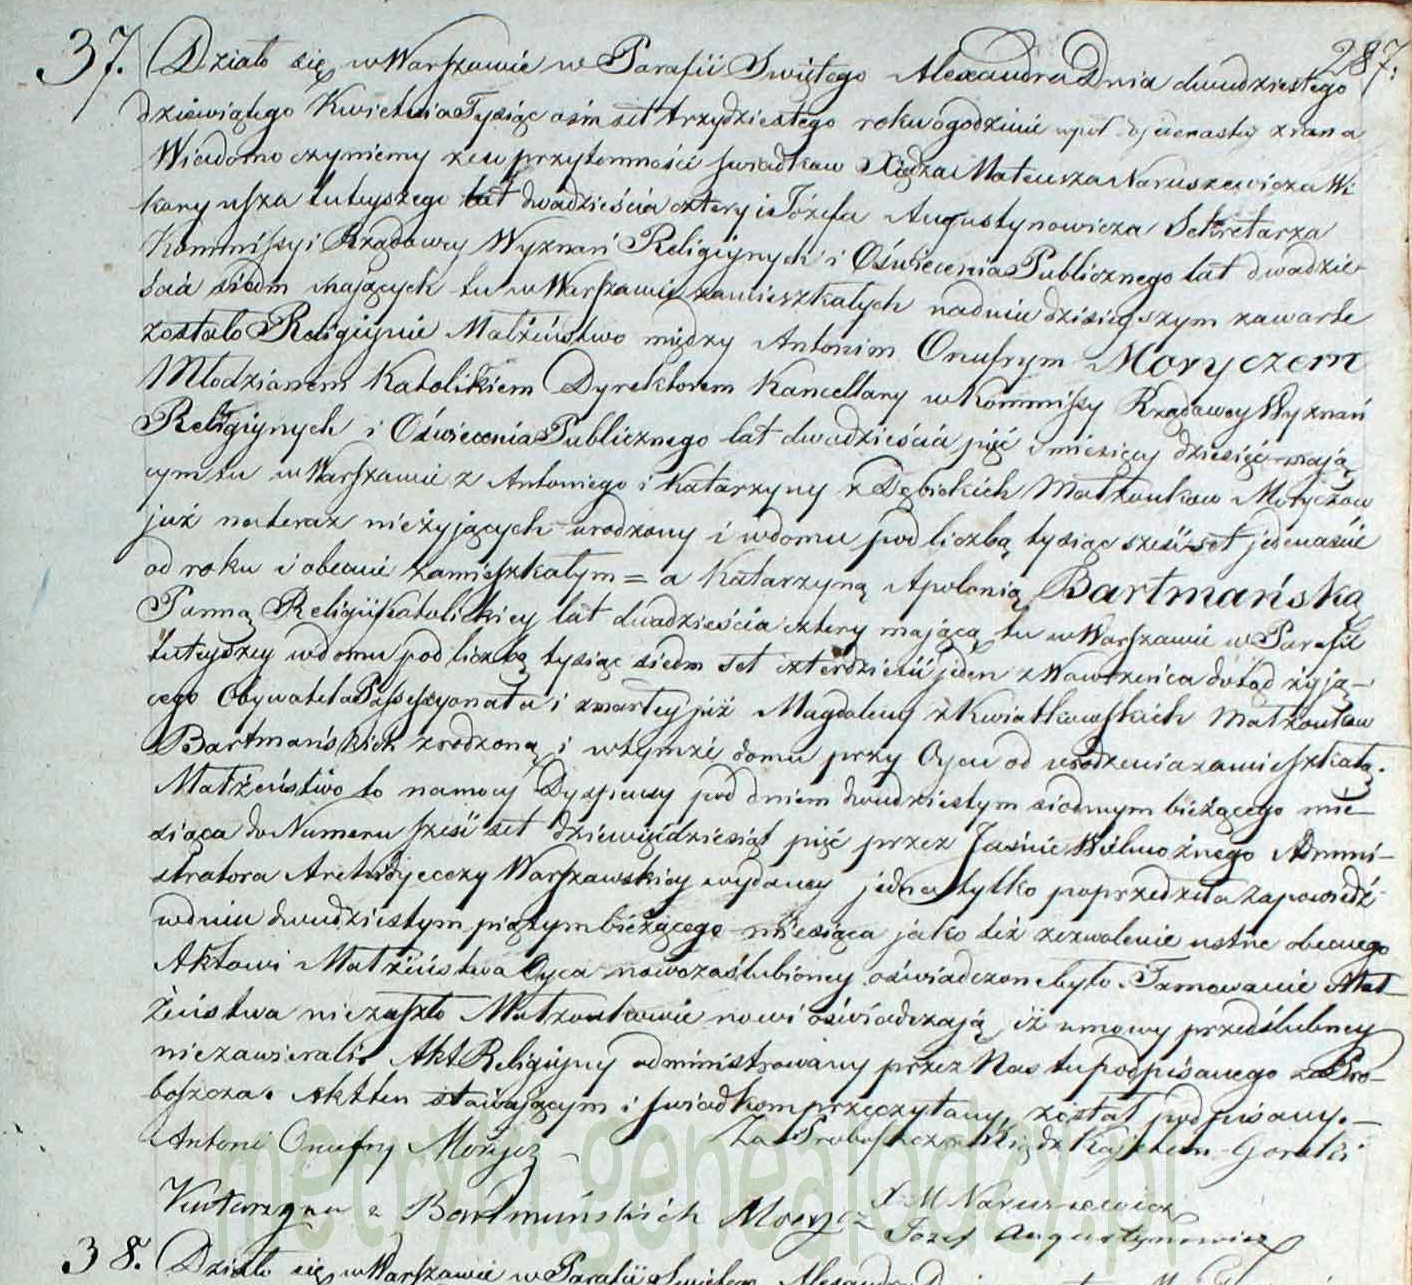 287.
37. Działo się w Warszawie w Parafii Swiętego Alexandra Dnia dwudziestego
dziewiątego Kwietnia Tysiąc ośm set trzydziestego roku o godzinie wpół do jedenastej z rana
Wiadomo czyniemy że w przytomności swiadkow Xiędza Mateusza Naruszewicza Wi-
karyusza tutejszego lat dwadzieścia cztery i Józefa Augustynowicza Sekretarza
Kommissyi Rządowey Wyznań Religijnych i Oświecenia Publicznego lat dwadzie-
ścia siedm mających tu w Warszawie zamieszkałych na dniu dzisieyszym zawarte
zostało Religijnie Małżeństwo między Antonim Onufrym Moryczem
Młodzianem Katolikiem Dyrektorem Kancellaryi w Kommissyi Rządowey Wyznań
Religijnych i Oświecenia Publicznego lat dwadzieścia pięć i miesięcy dziesięć mają-
cym tu w Warszawie z Antoniego i Katarzyny z Dębickich Małżonkow Moryczow
już na teraz nieżyjących urodzony i w domu pod liczbą tysiąc sześć set jedenaście
od roku i obecnie zamieszkałym = a Katarzyną Apolonią Bartmańską
Panną Religii Katolickiey lat dwadzieścia cztery mającą tu w Warszawie w Parafii
tuteyszey w domu pod liczbą tysiąc siedm set czterdzieści jeden z Wawrzeńca dotąd żyją-
cego Obywatela Possessyonata i zmarłey już Magdaleny z Kwiatkowskich Małżonkow
Bartmańskich zrodzoną i w tymże domu przy Oycu od urodzenia zamieszkałą.
Małżeństwo to na mocy Dyspensy pod dniem dwudziestym siodmym bieżącego mie-
siąca do Numeru sześć set dziewięćdziesiąt pięć przez Jaśnie Wielmożnego Admini-
stratora Archidyecezy Warszawskiey wydaney jedna tylko poprzedziła zapowiedź
w dniu dwudziestym piątym bieżącego miesiąca jako też zezwolenie ustne obecnego
Aktowi Małżeństwa Oyca nowozaślubioney oświadczone było. Tamowanie Mał-
żeństwa nie zaszło Małżonkowie nowi oświadczają iż umowy przedślubney
niezawierali. Akt Religijny administrowany przez Nas tu podpisanego za Pro-
boszcza. Akt ten stawającym i swiadkom przeczytany, został podpisany.—
Antoni Onufry Morycz — Za Proboszcza Xiądz Kajetan Gorski
Katarzyna z Bartmańskich Morycz X M Naruszewicz
Józef Augustynowicz
38. Działo się w Warszawie w Parafii Swiętego Alexandra
metryki.genealodzy.pl